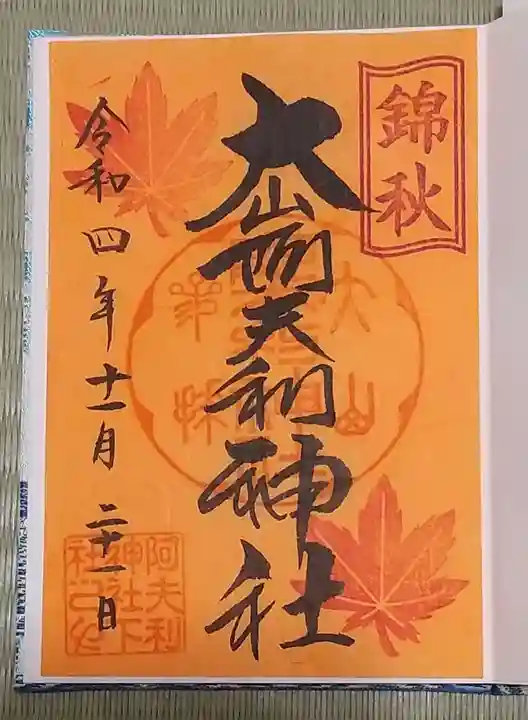 錦秋
大山阿夫利神社
令和四年十一月二十一日
大山
阿夫利
神社下